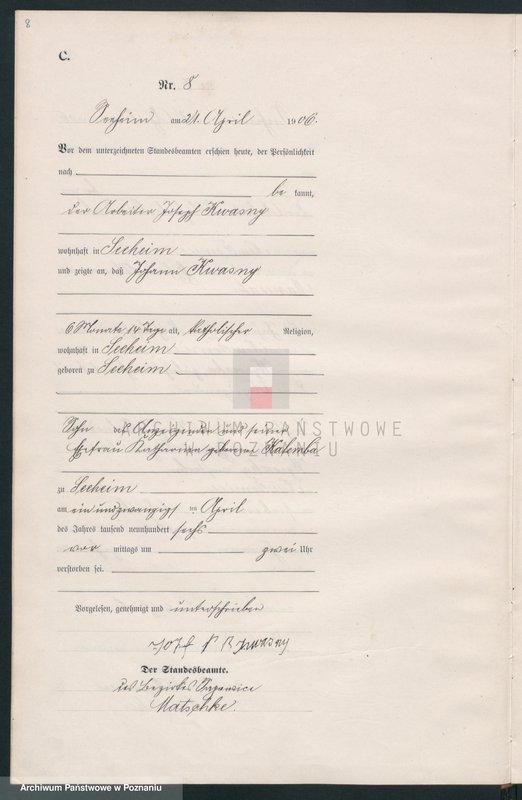 8
C.
Nr. 8
Seeheim am 21. April 1906.
Vor dem unterzeichneten Standesbeamten erschien heute, der Persönlichkeit
nach
be kannt,
der Arbeiter Joseph Kwasny
wohnhaft in Seeheim
und zeigte an, daß Johann Kwasny
6 Monate 14 Tage alt, katholischer Religion,
wohnhaft in Seeheim
geboren zu Seeheim
Sohn des Anzeigenden und seiner
ARCHIWUM PAŃSTWOWE
Ehefrau Katharina geborene Kalemba
W POZNANIU
zu Seeheim
am ein und zwanzigsten April
des Jahres tausend neunhundert sechs
vor mittags um zwei Uhr
verstorben sei.
Vorgelesen, genehmigt und unterschrieben
Kwasny
Der Standesbeamte.
des Bezirkes
Matschke.
Archiwum Państwowe w Poznaniu